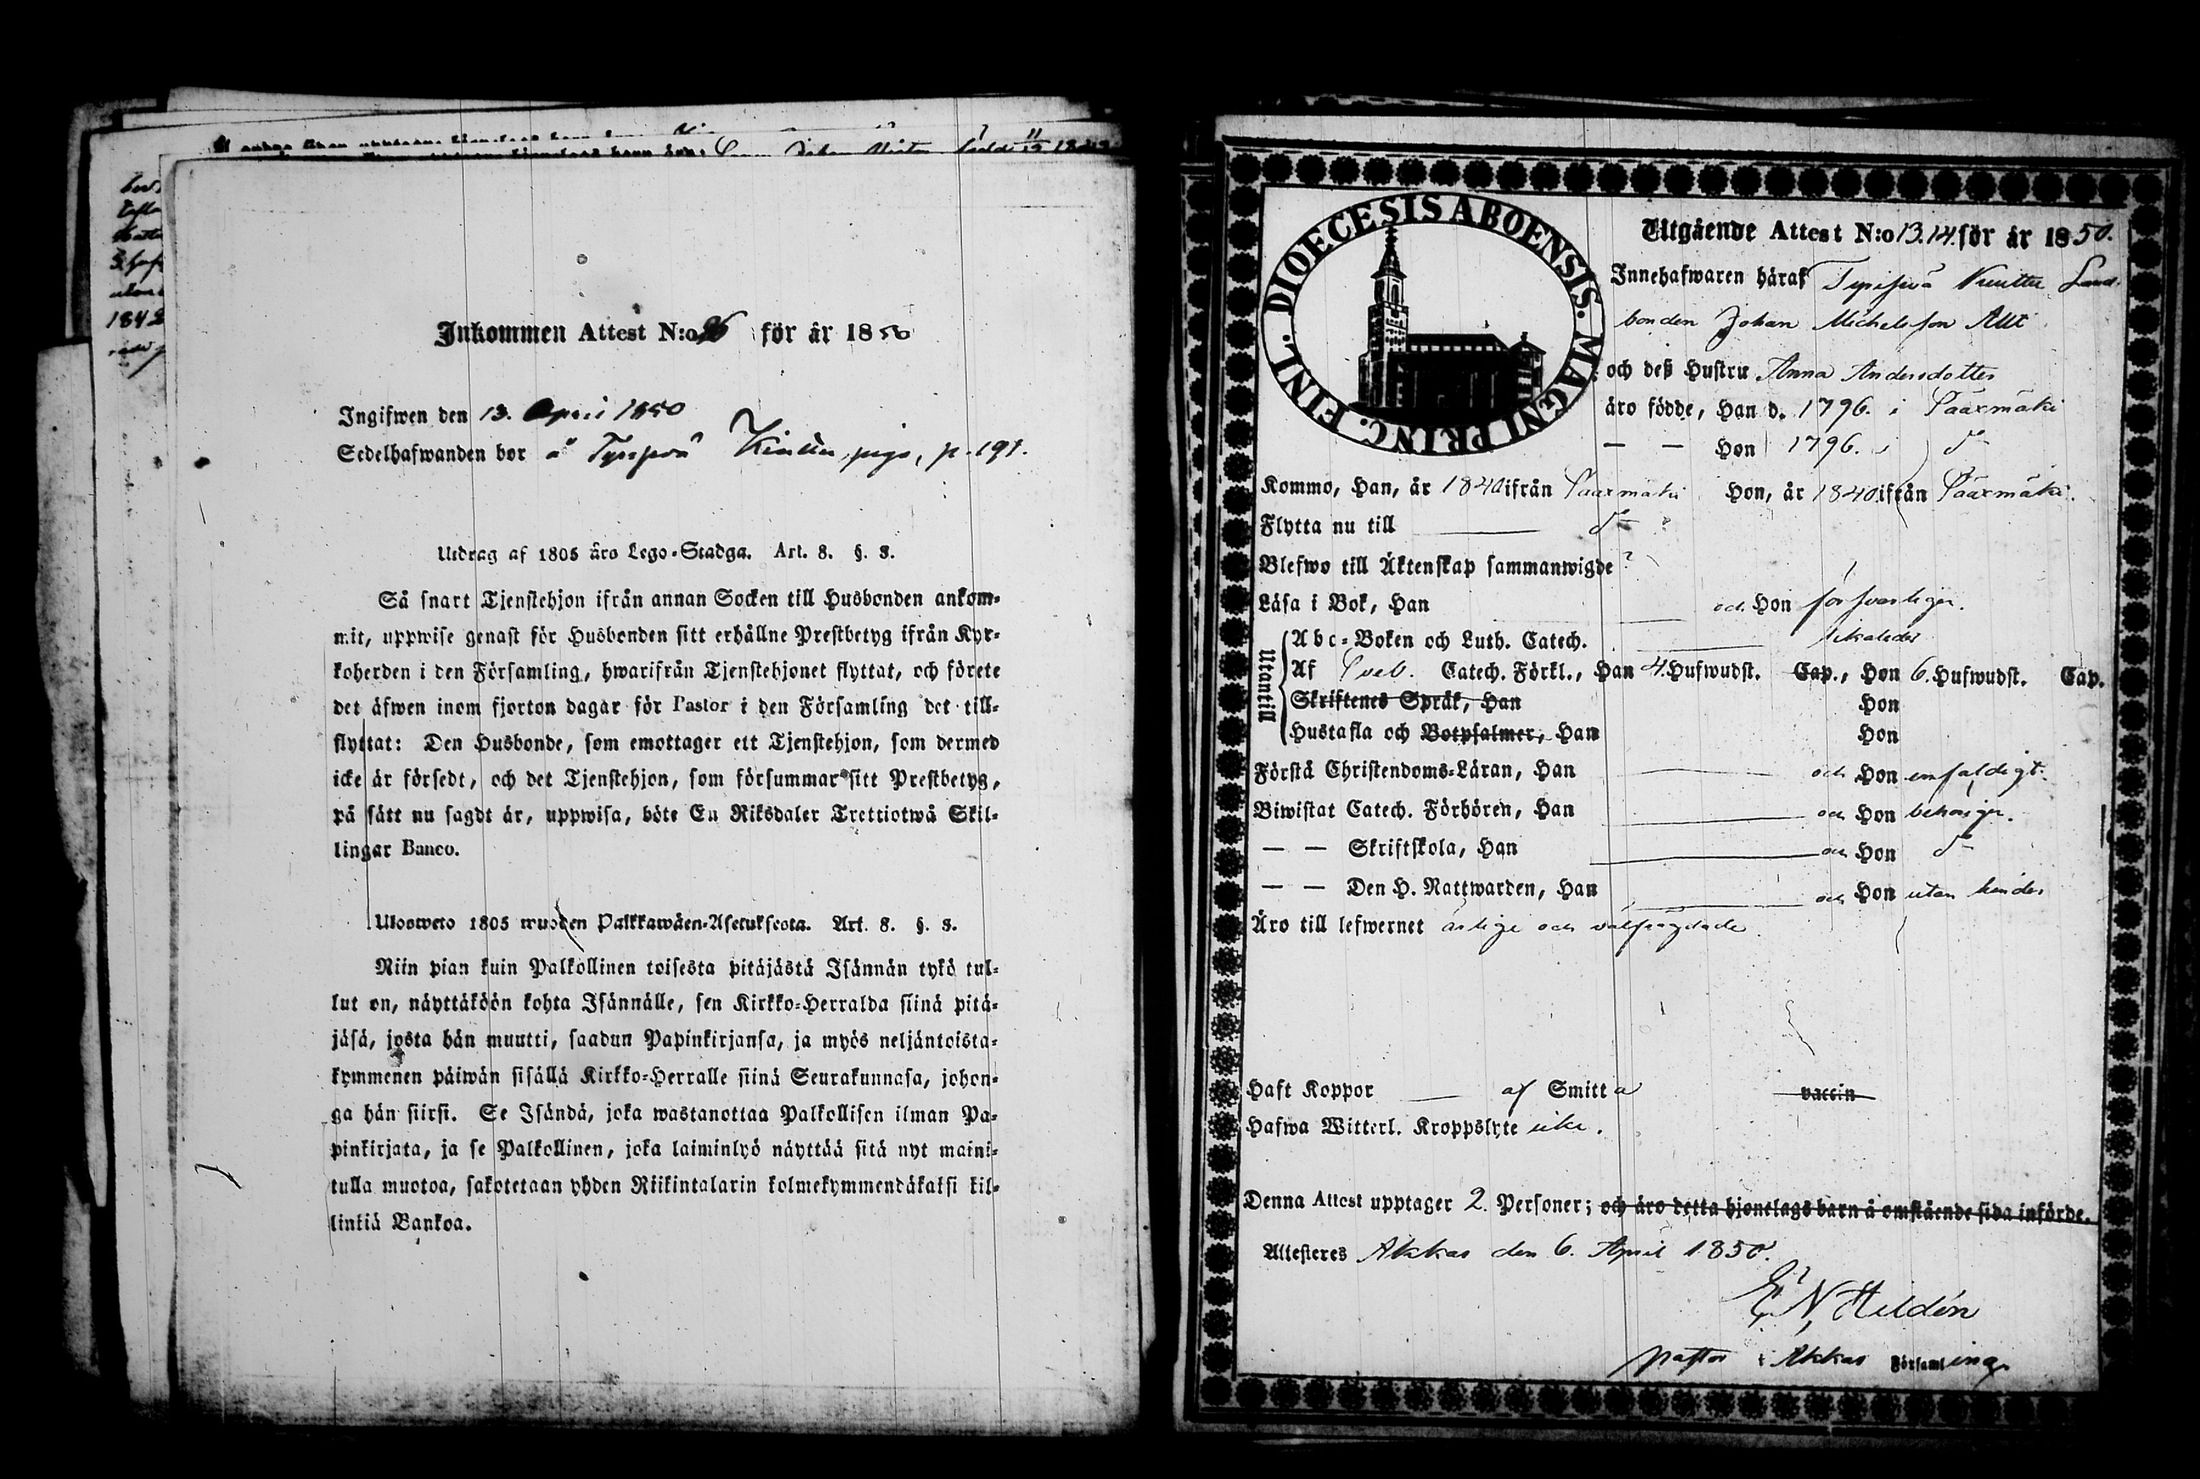 Inkommen Attest N:o 26 för år 1850
Ingifwen den 13. April 1850
Sedelhafwanden bor å pigo, p. 191.
Utdrag af 1805 års Lego-Stadga. Art. 8. §. 3.
Så snart Tjenstehjon ifrån annan Socken till Husbonden ankom-
mit, uppwise genast för Husbonden sitt erhållne Prestbetyg ifrån Kyr-
koherden i den Församling, hwarifrån Tjenstehjonet flyttat, och förete
det äfwen inom fjorton dagar för Pastor i den Församling det till-
flyttat: Den Husbonde, som emottager ett Tjenstehjon, som dermed
icke är försedt, och det Tjenstehjon, som försummar sitt Prestbetyg,
på sätt nu sagdt är, uppwisa, böte En Riksdaler Trettiotwå Skil-
lingar Banco.
Ulosweto 1805 wuoden Palkkawäen-Asetuksesta. Art. 8. §. 3.
Niin pian kuin Palkollinen toisesta pitäjästä Isännän tykö tul-
lut on, näyttäköön kohta Isännälle, sen Kirkko-Herralda siinä pitä-
jäsä, josta hän muutti, saadun Papinkirjansa, ja myös neljäntoista-
kymmenen päiwän sisällä Kirkko-Herralle siinä Seurakunnasa, johon-
ga hän siirsi. Se Isändä, joka wastanottaa Palkollisen ilman Pa-
pinkirjata, ja se Palkollinen, joka laiminlyö näyttää sitä nyt maini-
tulla muotoa, sakotetaan yhden Riikintalarin kolmekymmendäkaksi kil-
linkiä Bankoa.
DIOECESIS ABOENSIS. MAGNI PRINC. FINL.
Utgående Attest N:o 13.14. för år 1850.
Innehafwaren häraf Land-
bonden Johan Michelsson
och deß Hustru Anna Andersdotter
äro födde, Han d. 1796. i Sääxmäki
— — Hon 1796. i d:o
Kommo, Han, år 1840 ifrån Sääxmäki Hon, år 1840 ifrån Sääxmäki.
Flytta nu till d:o
Blefwo till Äktenskap sammanwigde ?
Läsa i Bok, Han och Hon försvarligen.
Utantill
Abc-Boken och Luth. Catech. likaledes
Af Sveb. Catech. Förkl., Han 4. Hufwudst. Cap., Hon 6. Hufwudst. Cap.
Skriftenes Språk, Han Hon
Hustafla och Botpsalmer, Han Hon
Förstå Christendoms-Läran, Han och Hon enfaldigt.
Biwistat Catech. Förhören, Han och Hon behörigen.
— — Skriftskola, Han och Hon d:o
— — Den H. Nattwarden, Han och Hon utan hinder
Äro till lefwernet ärlige och välfrägdade
Haft Koppor af Smitta vaccin
Hafwa Witterl. Kroppslyte icke.
Denna Attest upptager 2. Personer; och äro detta hjonelags barn å omstående sida införde.
Attesteres Akkas den 6. April 1850.
E. N. Hildén
pastor i Akkas Församling